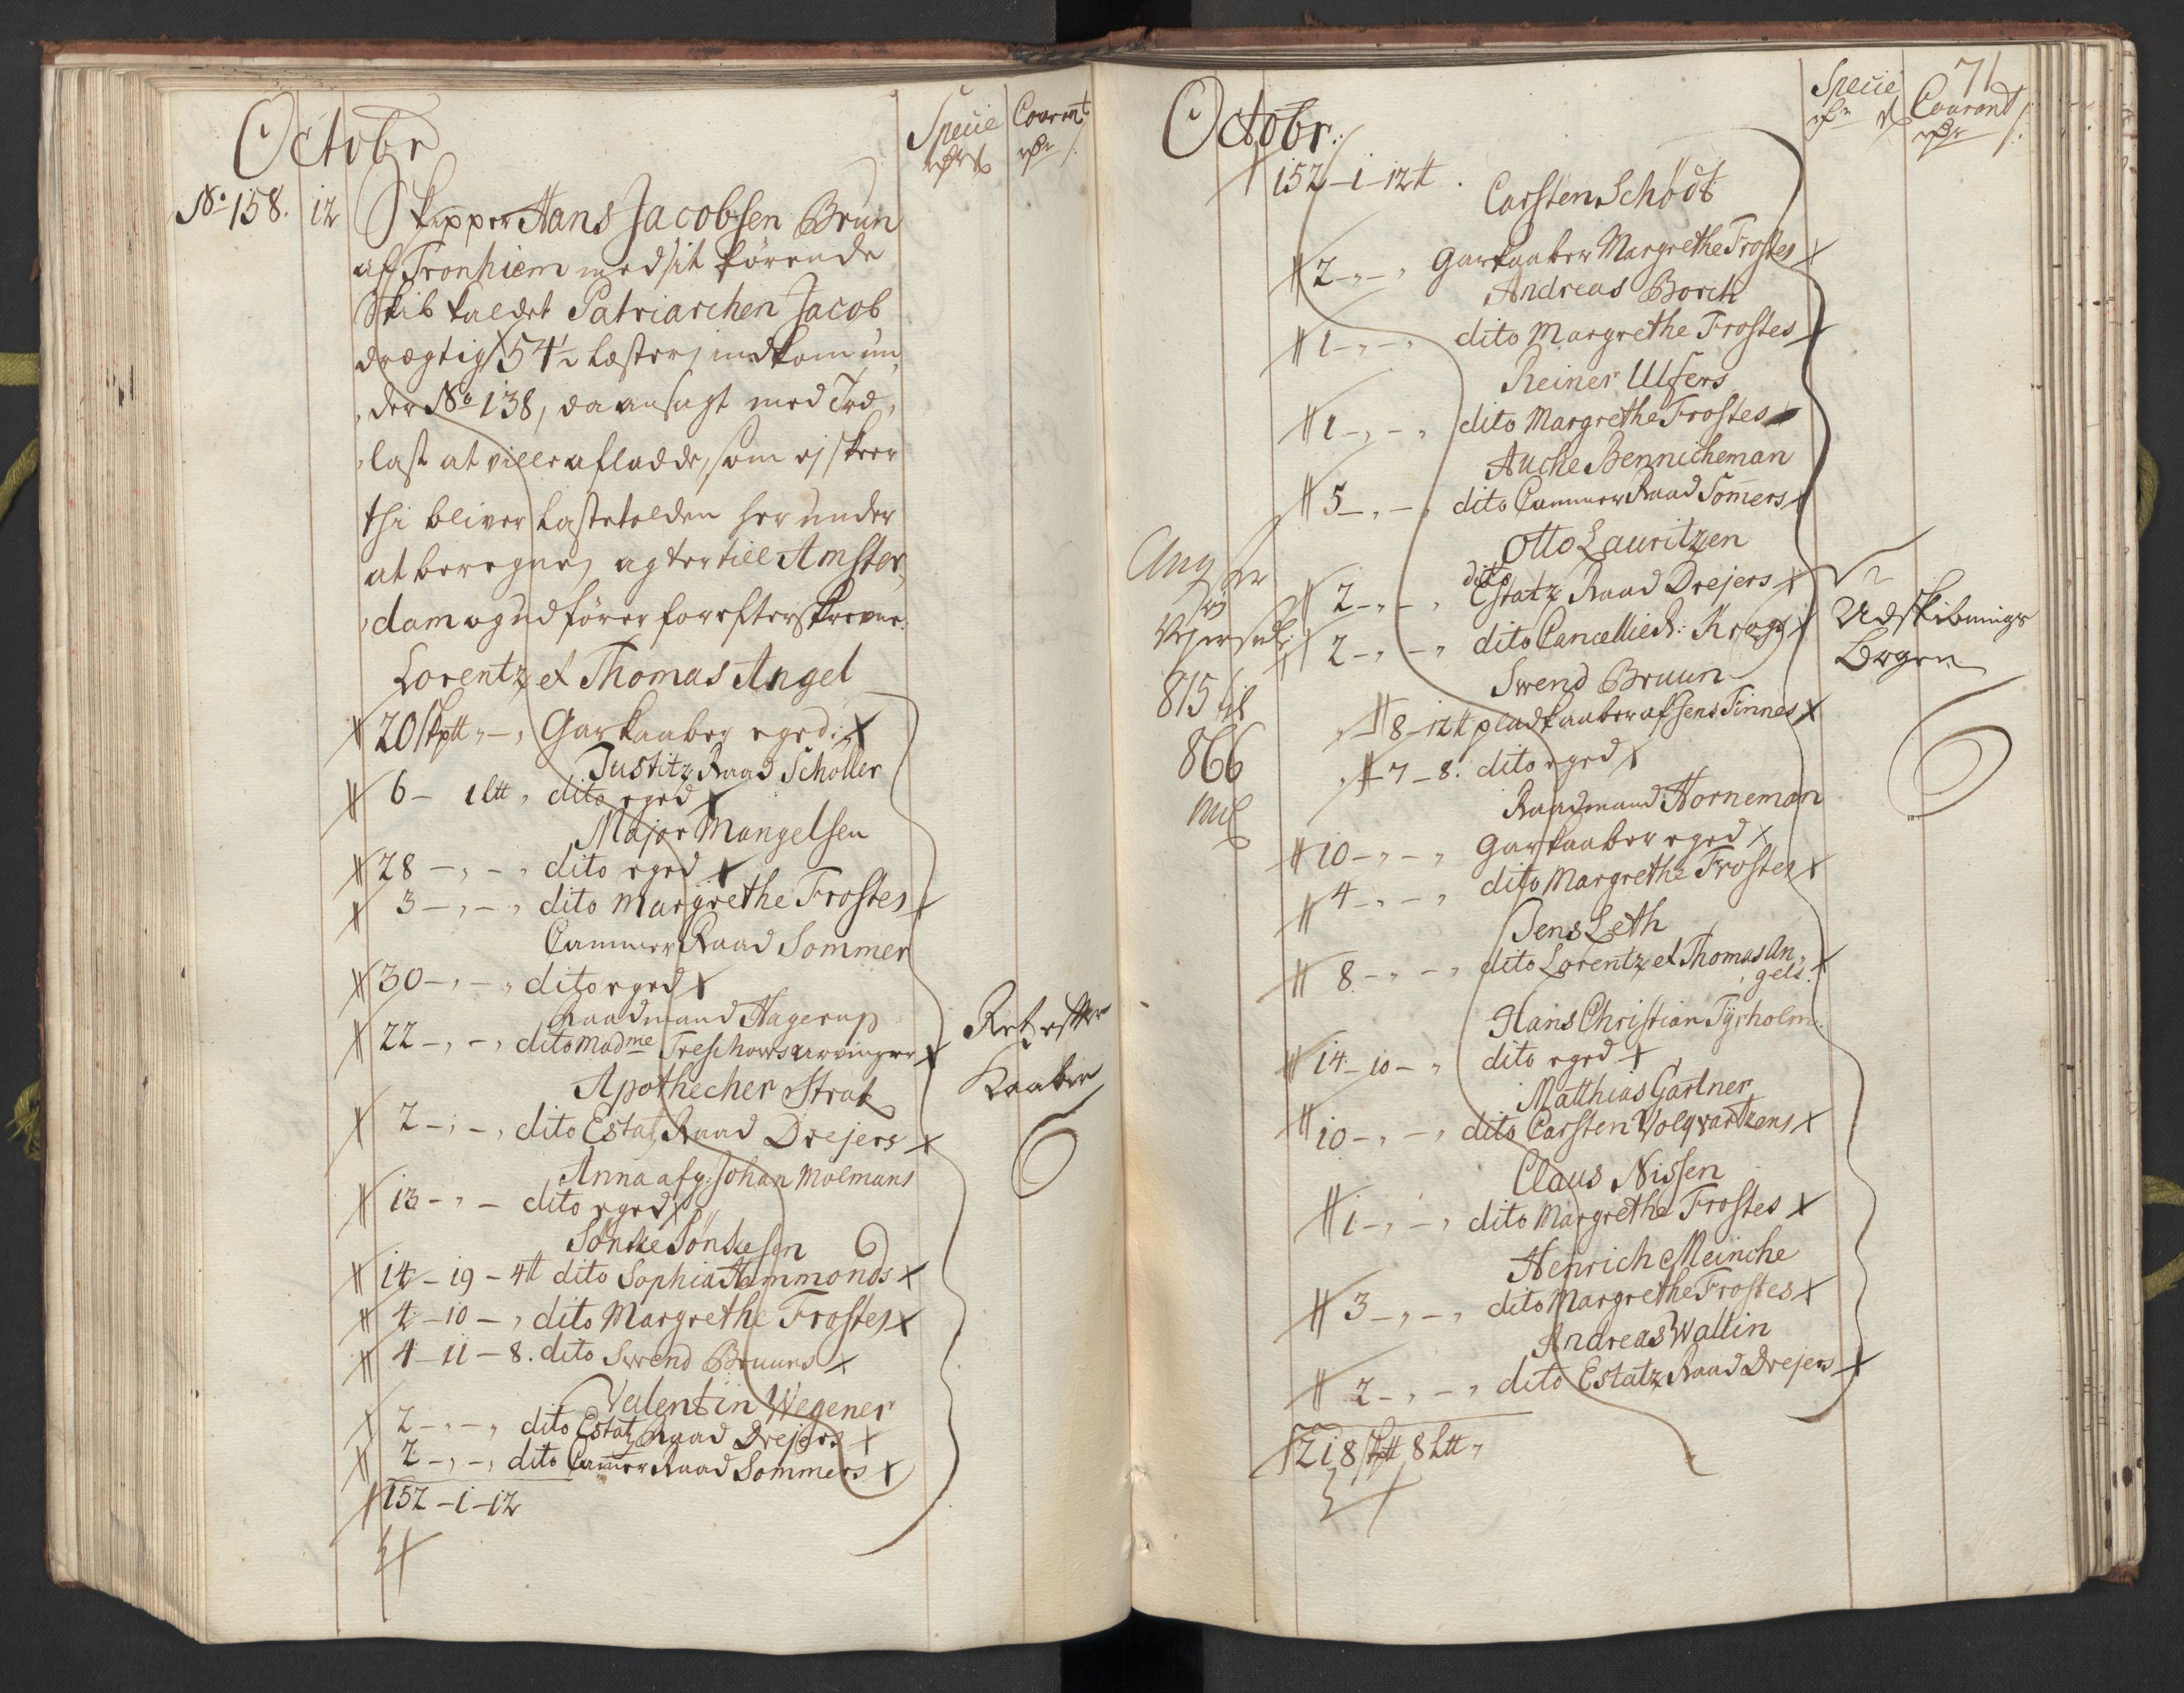 Octobr
Specie Courant
No. 158. 12 Skipper Hans Jacobsen Brun
af Tronhiem med sit förende
Skib kaldet Patriarchen Jacob
drægtig 54½ Læster, indkom un,
,der No 138, da ansagt med Træ,
,last at ville afladde, som ej skeer
thi bliver Lastetolden her under
at beregne, agter till Amster,
,dam og udförer for efterskrevne:
Lorentz et Thomas Angel
20 Skp℔ „ – „ Garkaaber eged:
Justitz Raad Schöller
6 – 1 L℔ „ dito eged
Major Mangelsen
28 – „ – „ dito eged
3 – „ – „ dito Margrethe Frostes
Cammer Raad Sommer
30 – „ – „ dito eged
Raadmand Hagerup
22 – „ – „ dito Madme Treschows arvinger
Ret efter
Apothecher Strak
Kaabin
2 – „ – „ dito Estatz Raad Drejers
Anna afg: Johan Mölmans
13 – „ – dito eged
Söncke Sönckesen
14 – 19 – 4℔ dito Sophia Hammonds
4 – 10 – „ dito Margrethe Frostes
4 – 11 – 8. dito Swend Bruuns
Valentin Wegener
2 – „ – „ dito Estatz Raad Drejers
2 – „ – „ dito Camer Raad Sommers
152 – 1 – 12
71
Octobr:
Specie Courant
152 – 1 – 12℔.
Carsten Schödt
2 – „ – „ Garkaaber Margrethe Frostes
Andreas Borch
1 – „ – „ dito Margrethe Frostes
Reiner Ulfers
1 – „ – „ dito Margrethe Frostes
Auche Bennicheman
5 – „ – „ dito Cammer Raad Somers
Otto Lauritzen
2 – „ – „ dito Estatz Raad Drejers
2 – „ – „ dito Cancellie R: Krogs
Udskibnings
Bogen
815 til
866
Swend Bruun
„ – 8 – 12℔ pladkaaber af Jens Finnes
„ – 7 – 8. dito eged
Raadmand Horneman
10 – „ – „ Garkaaber eged
4 – „ – „ dito Margrethe Frostes
Jens Leth
8 – „ – „ dito Lorentz et Thomas An,
,gels.
Hans Christian Tyrholm:
14 – 10 – „ dito eged
Matthias Gartner
10 – „ – „ dito Carsten Volqvartzens
Claus Nissen
1 – „ – „ dito Margrethe Frostes
Henrich Meinche
3 – „ – „ dito Margrethe Frostes
Andreas Wallin
2 – „ – „ dito Estatz Raad Drejers
218 Skp℔ 8 L℔ „